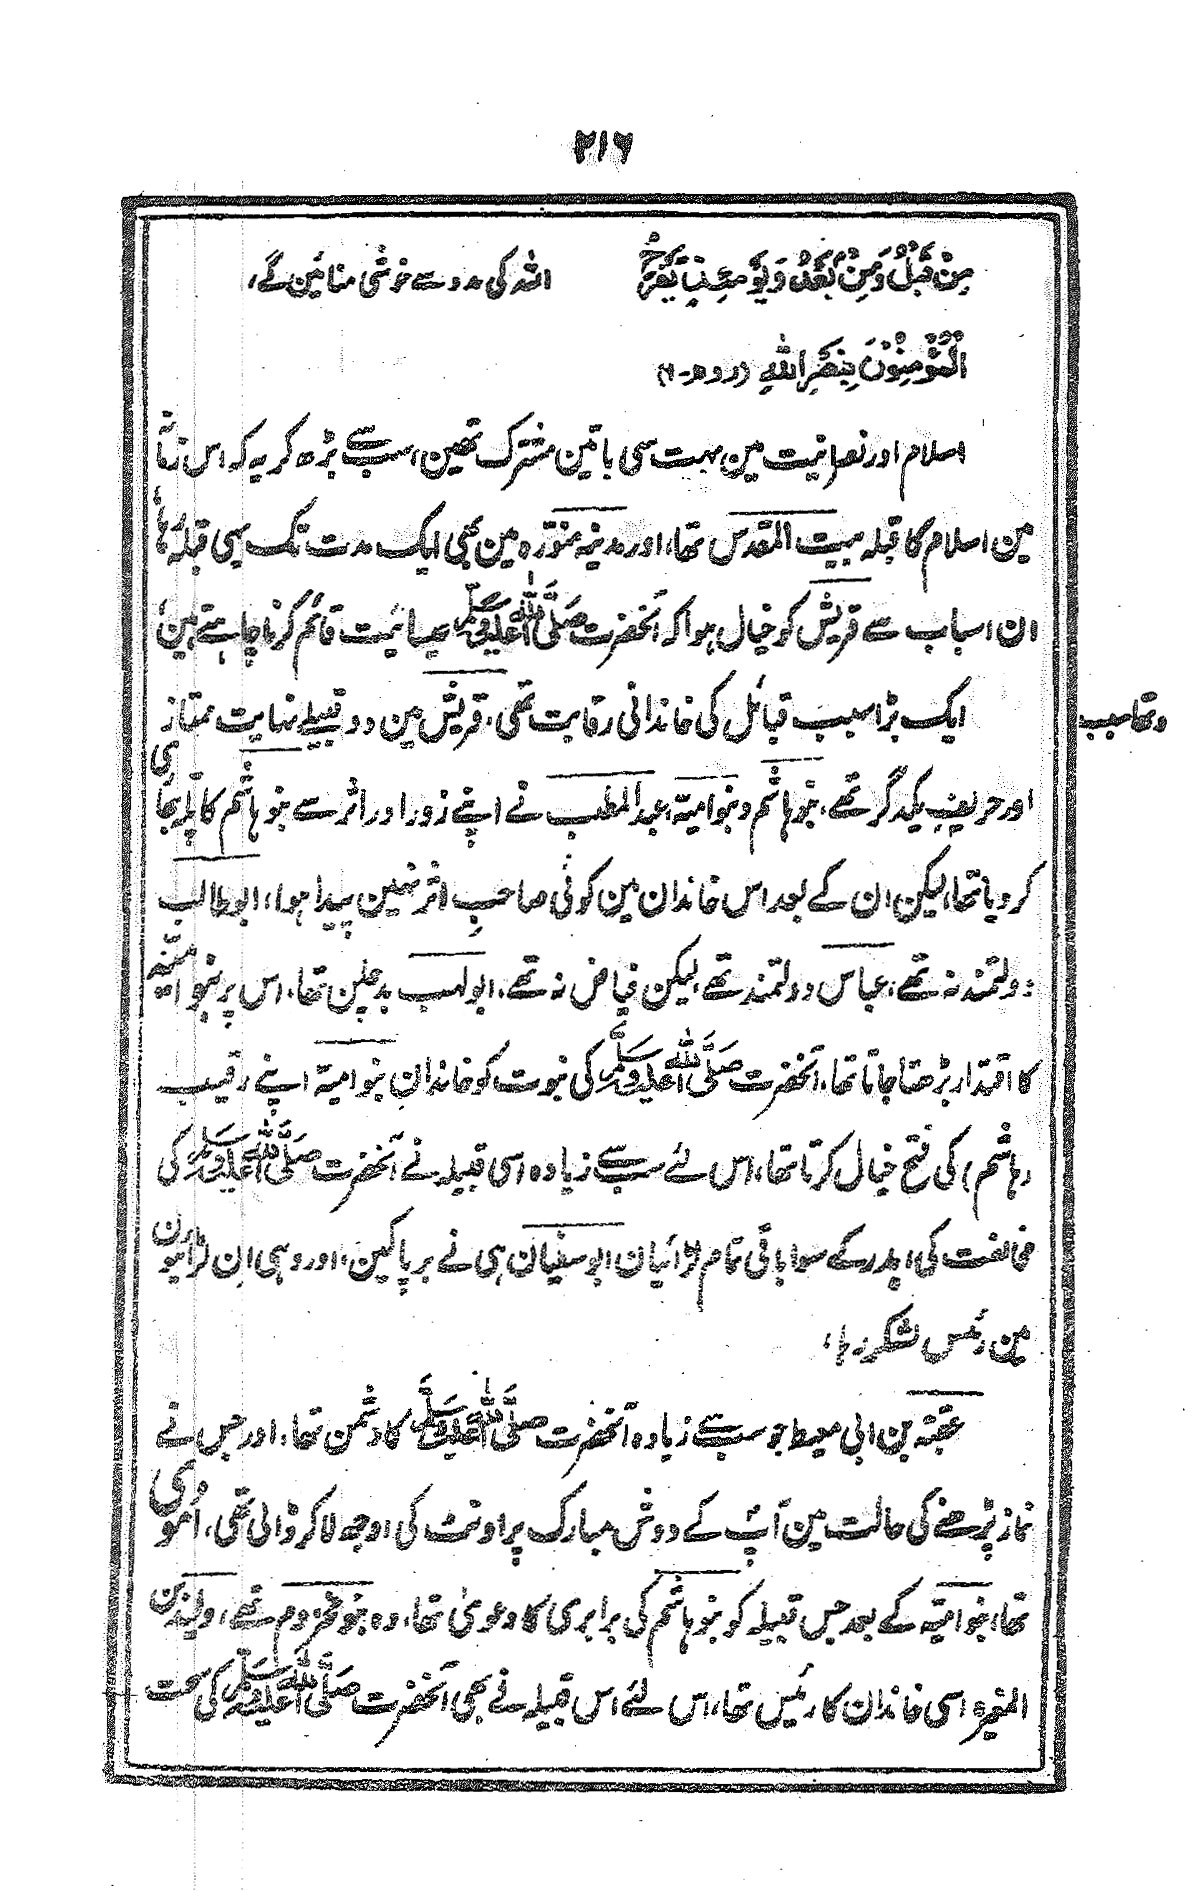 ۲۱۶
مِنْ قَبْلُ وَمِنْ بَعْدُ وَيَوْمَئِذٍ يَفْرَحُ اللہ کی مدد سے خوشی منائین گے،
الْمُؤْمِنُونَ بِنَصْرِ اللهِ (روم-۱)
اسلام اور نصرانیت مین بہت سی باتین مشترک تھین، سب سے بڑھ کر یہ کہ اس زمانہ
مین اسلام کا قبلہ بیت المقدس تھا، اور مدینہ منورہ مین بھی ایک مدت تک یہی قبلہ رہا
ان اسباب سے قریش کو خیال ہوا کہ آنحضرت صلی اللہ علیہ وسلم عیسائیت قائم کرنا چاہتے ہین،
ایک بڑا سبب قبائل کی خاندانی رقابت تھی، قریش مین دو قبیلے نہایت ممتاز
چوتھا سبب
اور حریف یکدیگر تھے، بنو ہاشم و بنو امیہ، عبد المطلب نے اپنے زور اور اثر سے بنو ہاشم کا پلہ بھاری
کر دیا تھا، لیکن ان کے بعد اس خاندان مین کوئی صاحب اثر نہین پیدا ہوا، ابو طالب
دولتمند نہ تھے، عباس دولتمند تھے لیکن فیاض نہ تھے، ابو لہب بد چلن تھا، اس پر بنو امیہ
کا اقتدار بڑھتا جاتا تھا، آنحضرت صلی اللہ علیہ وسلم کی نبوت کو خاندان بنو امیہ اپنے رقیب
(ہاشم) کی فتح خیال کرتا تھا، اس لئے سب سے زیادہ اسی قبیلہ نے آنحضرت صلی اللہ علیہ وسلم کی
مخالفت کی، بدر کے سوا باقی تمام لڑائیان ابو سفیان ہی نے برپا کین، اور وہی ان لڑائیون
مین رئیس لشکر رہا،
عقبہ بن ابی معیط جو سب سے زیادہ آنحضرت صلی اللہ علیہ وسلم کا دشمن تھا، اور جس نے
نماز پڑھنے کی حالت مین آپ کے دوش مبارک پر اونٹ کی اوجھ لا کر ڈالی تھی، اموی
تھا، بنو امیہ کے بعد جس قبیلہ کو بنو ہاشم کی برابری کا دعویٰ تھا، وہ بنو مخزوم تھے، ولید بن
المغیرہ اسی خاندان کا رئیس تھا، اس لئے اس قبیلہ نے بھی آنحضرت صلی اللہ علیہ وسلم کی سخت